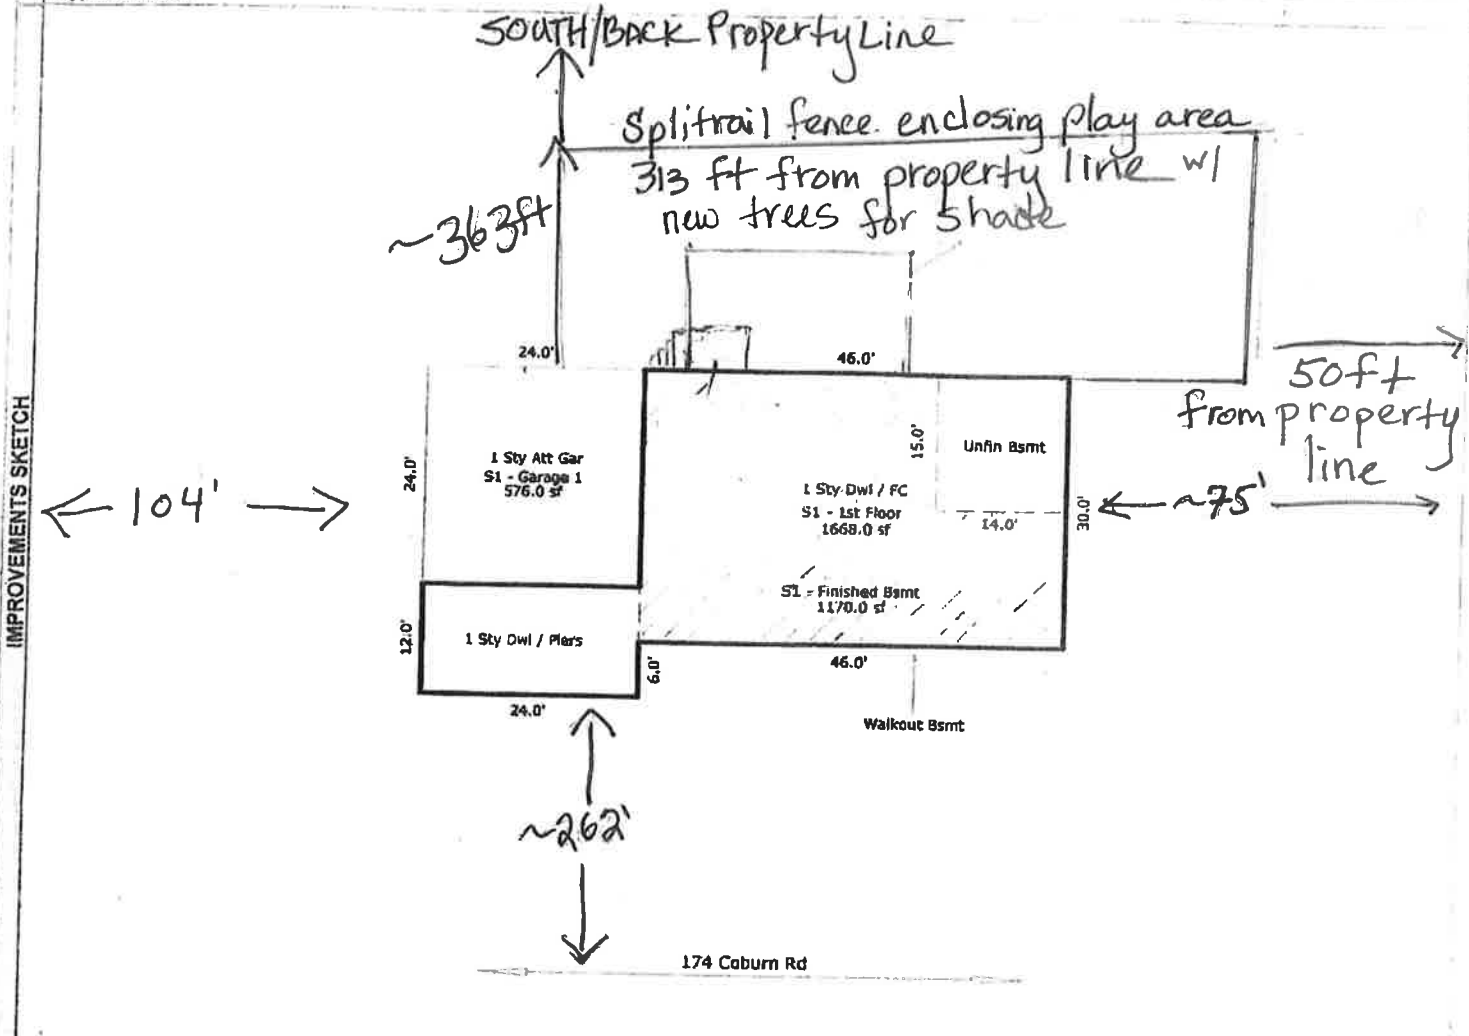 SOUTH/BACK Property Line
Splitrail fence enclosing play area
313 ft from property line w/
new trees for shade
~363ft
24.0'
46.0'
50ft
from property
line
IMPROVEMENTS SKETCH
104'
24.0'
1 Sty Att Gar
S1 - Garage 1
576.0 sf
15.0'
Unfin Bsmt
1 Sty Dwl / FC
S1 - 1st Floor
1668.0 sf
14.0'
30.0'
~75'
S1 - Finished Bsmt
1170.0 sf
12.0'
1 Sty Dwl / Piers
6.0'
46.0'
24.0'
Walkout Bsmt
~262'
174 Coburn Rd